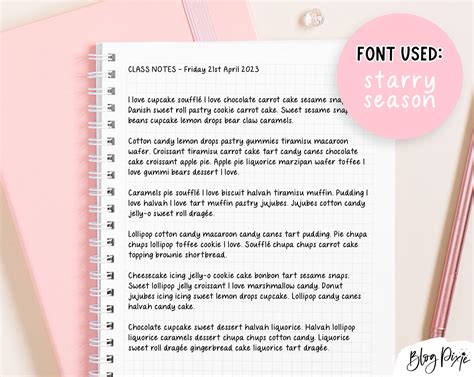 CLASS NOTES - Friday 21st April 2023
I love cupcake soufflé I love chocolate carrot cake sesame snaps
Danish sweet roll pastry cookie cake. Sweet sesame snaps
beans cupcake lemon drops bear claw caramels.
Cotton candy lemon drops pastry gummies tiramisu macaroon
wafer. Croissant tiramisu carrot cake tart candy canes chocolate
cake croissant apple pie. Apple pie liquorice marzipan wafer toffee I
love gummi bears dessert I love.
Caramels pie soufflé I love biscuit halvah tiramisu muffin. Pudding I
love halvah I love tart muffin pastry jujubes. Jujubes cotton candy
jelly-o sweet roll dragée.
Lollipop cotton candy macaroon candy canes tart pudding. Pie chupa
chups lollipop toffee cookie I love. Soufflé chupa chups carrot cake
topping brownie shortbread.
Cheesecake icing jelly-o cookie cake bonbon tart sesame snaps.
Sweet lollipop jelly croissant I love marshmallow candy. Donut
jujubes icing icing sweet lemon drops cupcake. Lollipop candy canes
halvah candy cake.
Chocolate cupcake sweet dessert halvah liquorice. Halvah lollipop
liquorice caramels dessert chupa chups cotton candy. Liquorice
sweet roll dragée gingerbread cake liquorice tart dragée.
FONT USED:
starry
season
Blog Pixie